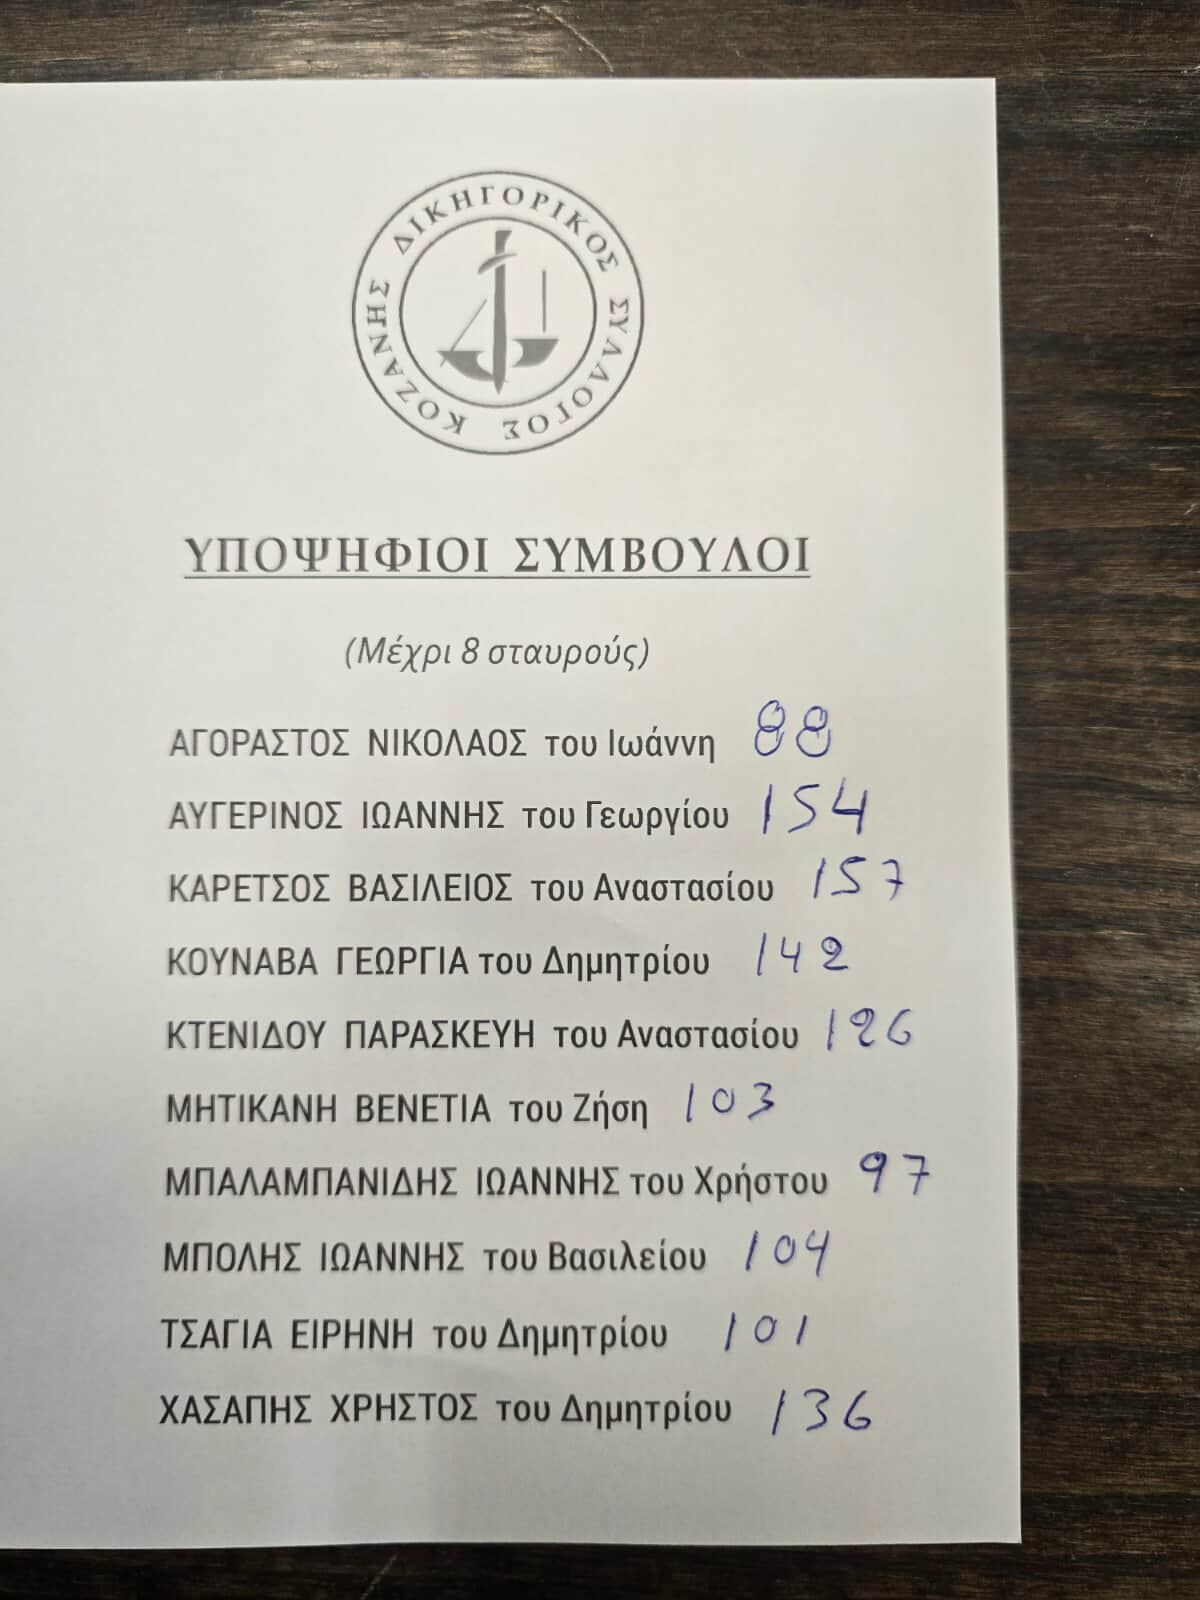 ΔΙΚΗΓΟΡΙΚΟΣ ΣΥΛΛΟΓΟΣ ΚΟΖΑΝΗΣ
ΥΠΟΨΗΦΙΟΙ ΣΥΜΒΟΥΛΟΙ
(Μέχρι 8 σταυρούς)
ΑΓΟΡΑΣΤΟΣ ΝΙΚΟΛΑΟΣ του Ιωάννη 88
ΑΥΓΕΡΙΝΟΣ ΙΩΑΝΝΗΣ του Γεωργίου 154
ΚΑΡΕΤΣΟΣ ΒΑΣΙΛΕΙΟΣ του Αναστασίου 157
ΚΟΥΝΑΒΑ ΓΕΩΡΓΙΑ του Δημητρίου 142
ΚΤΕΝΙΔΟΥ ΠΑΡΑΣΚΕΥΗ του Αναστασίου 126
ΜΗΤΙΚΑΝΗ ΒΕΝΕΤΙΑ του Ζήση 103
ΜΠΑΛΑΜΠΑΝΙΔΗΣ ΙΩΑΝΝΗΣ του Χρήστου 97
ΜΠΟΛΗΣ ΙΩΑΝΝΗΣ του Βασιλείου 104
ΤΣΑΓΙΑ ΕΙΡΗΝΗ του Δημητρίου 101
ΧΑΣΑΠΗΣ ΧΡΗΣΤΟΣ του Δημητρίου 136